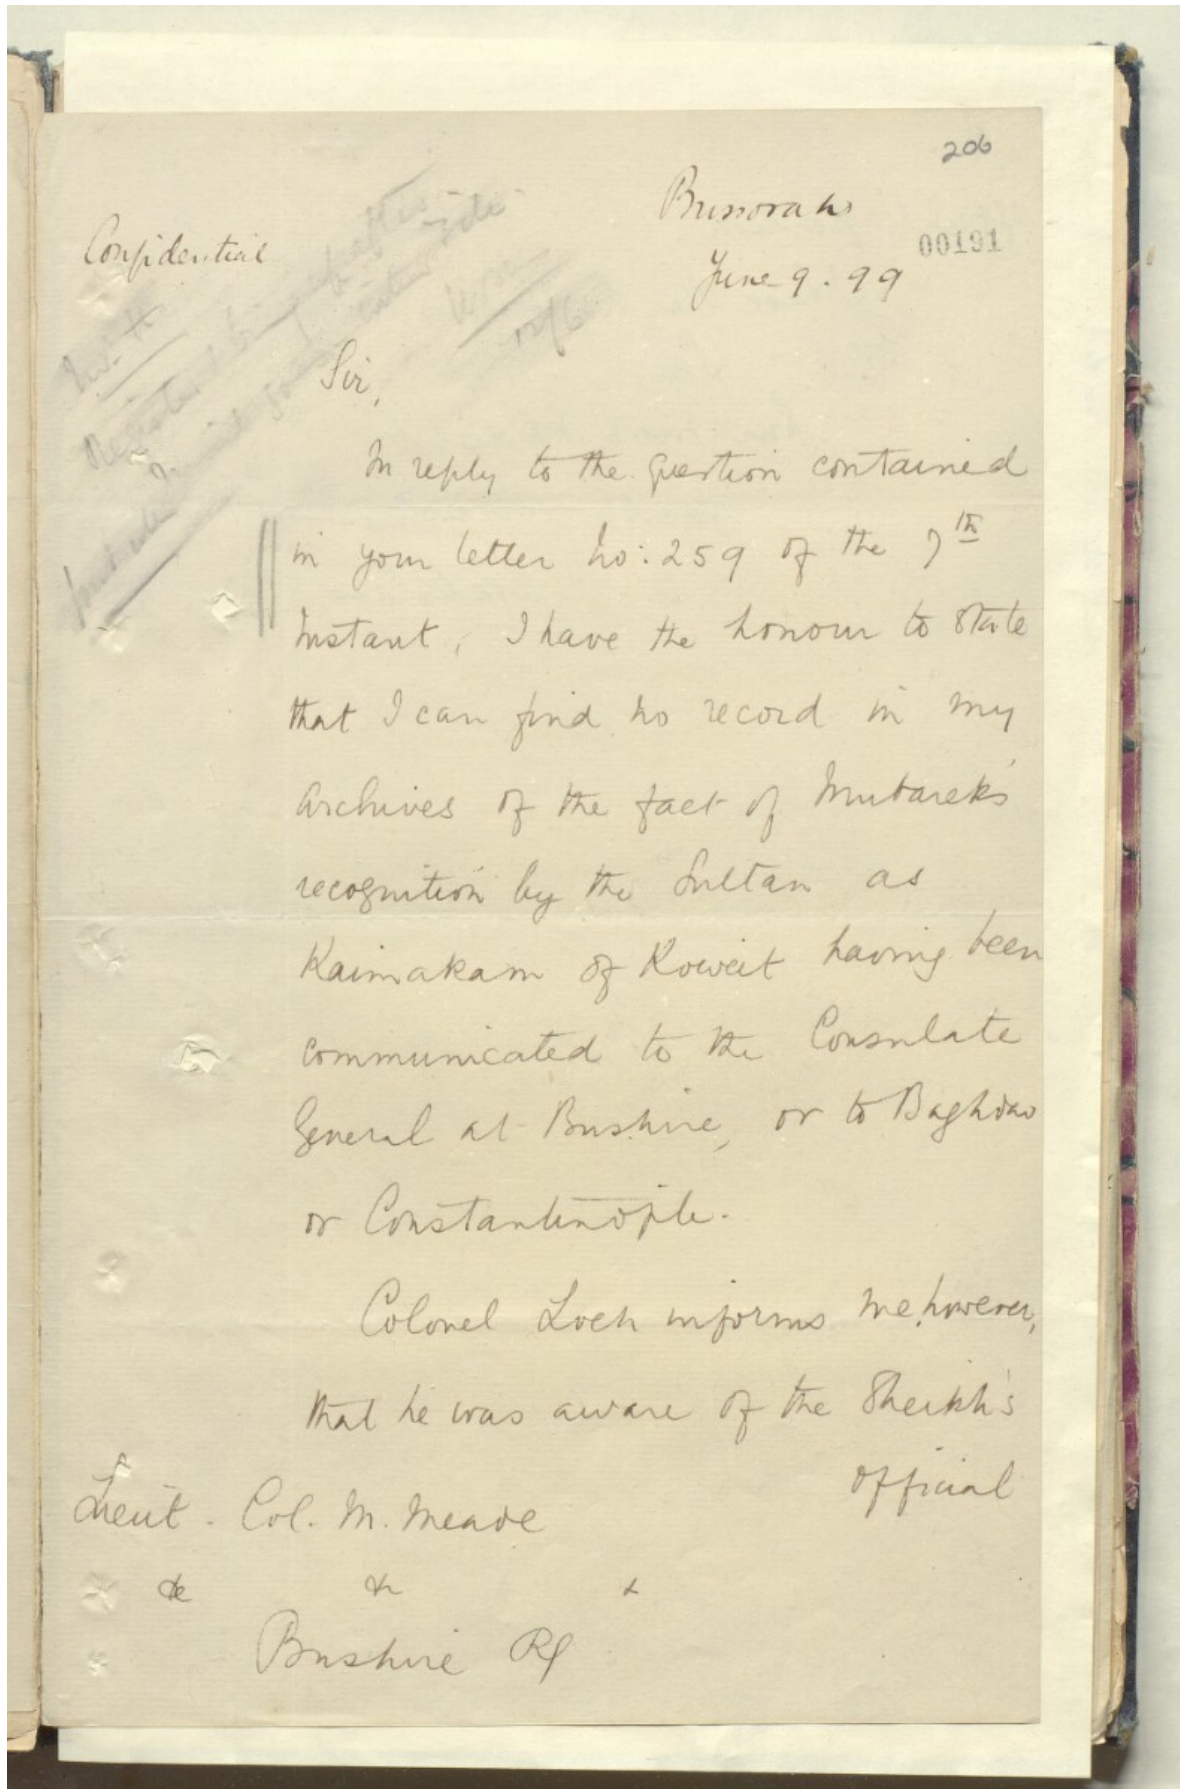 206
Bussorah
Confidential
00191
June 9. 99
Sir,
In reply to the question contained
in your letter No: 259 of the 7th
instant, I have the honour to state
that I can find no record in my
archives of the fact of Mubarek's
recognition by the Sultan as
Kaimakam of Koweit having been
communicated to the Consulate
General at Bushire, or to Baghdad
or Constantinople.
Colonel Loch informs me, however,
that he was aware of the Sheikh's
official
Lieut. Col. M. Meade
&c &c &
Bushire